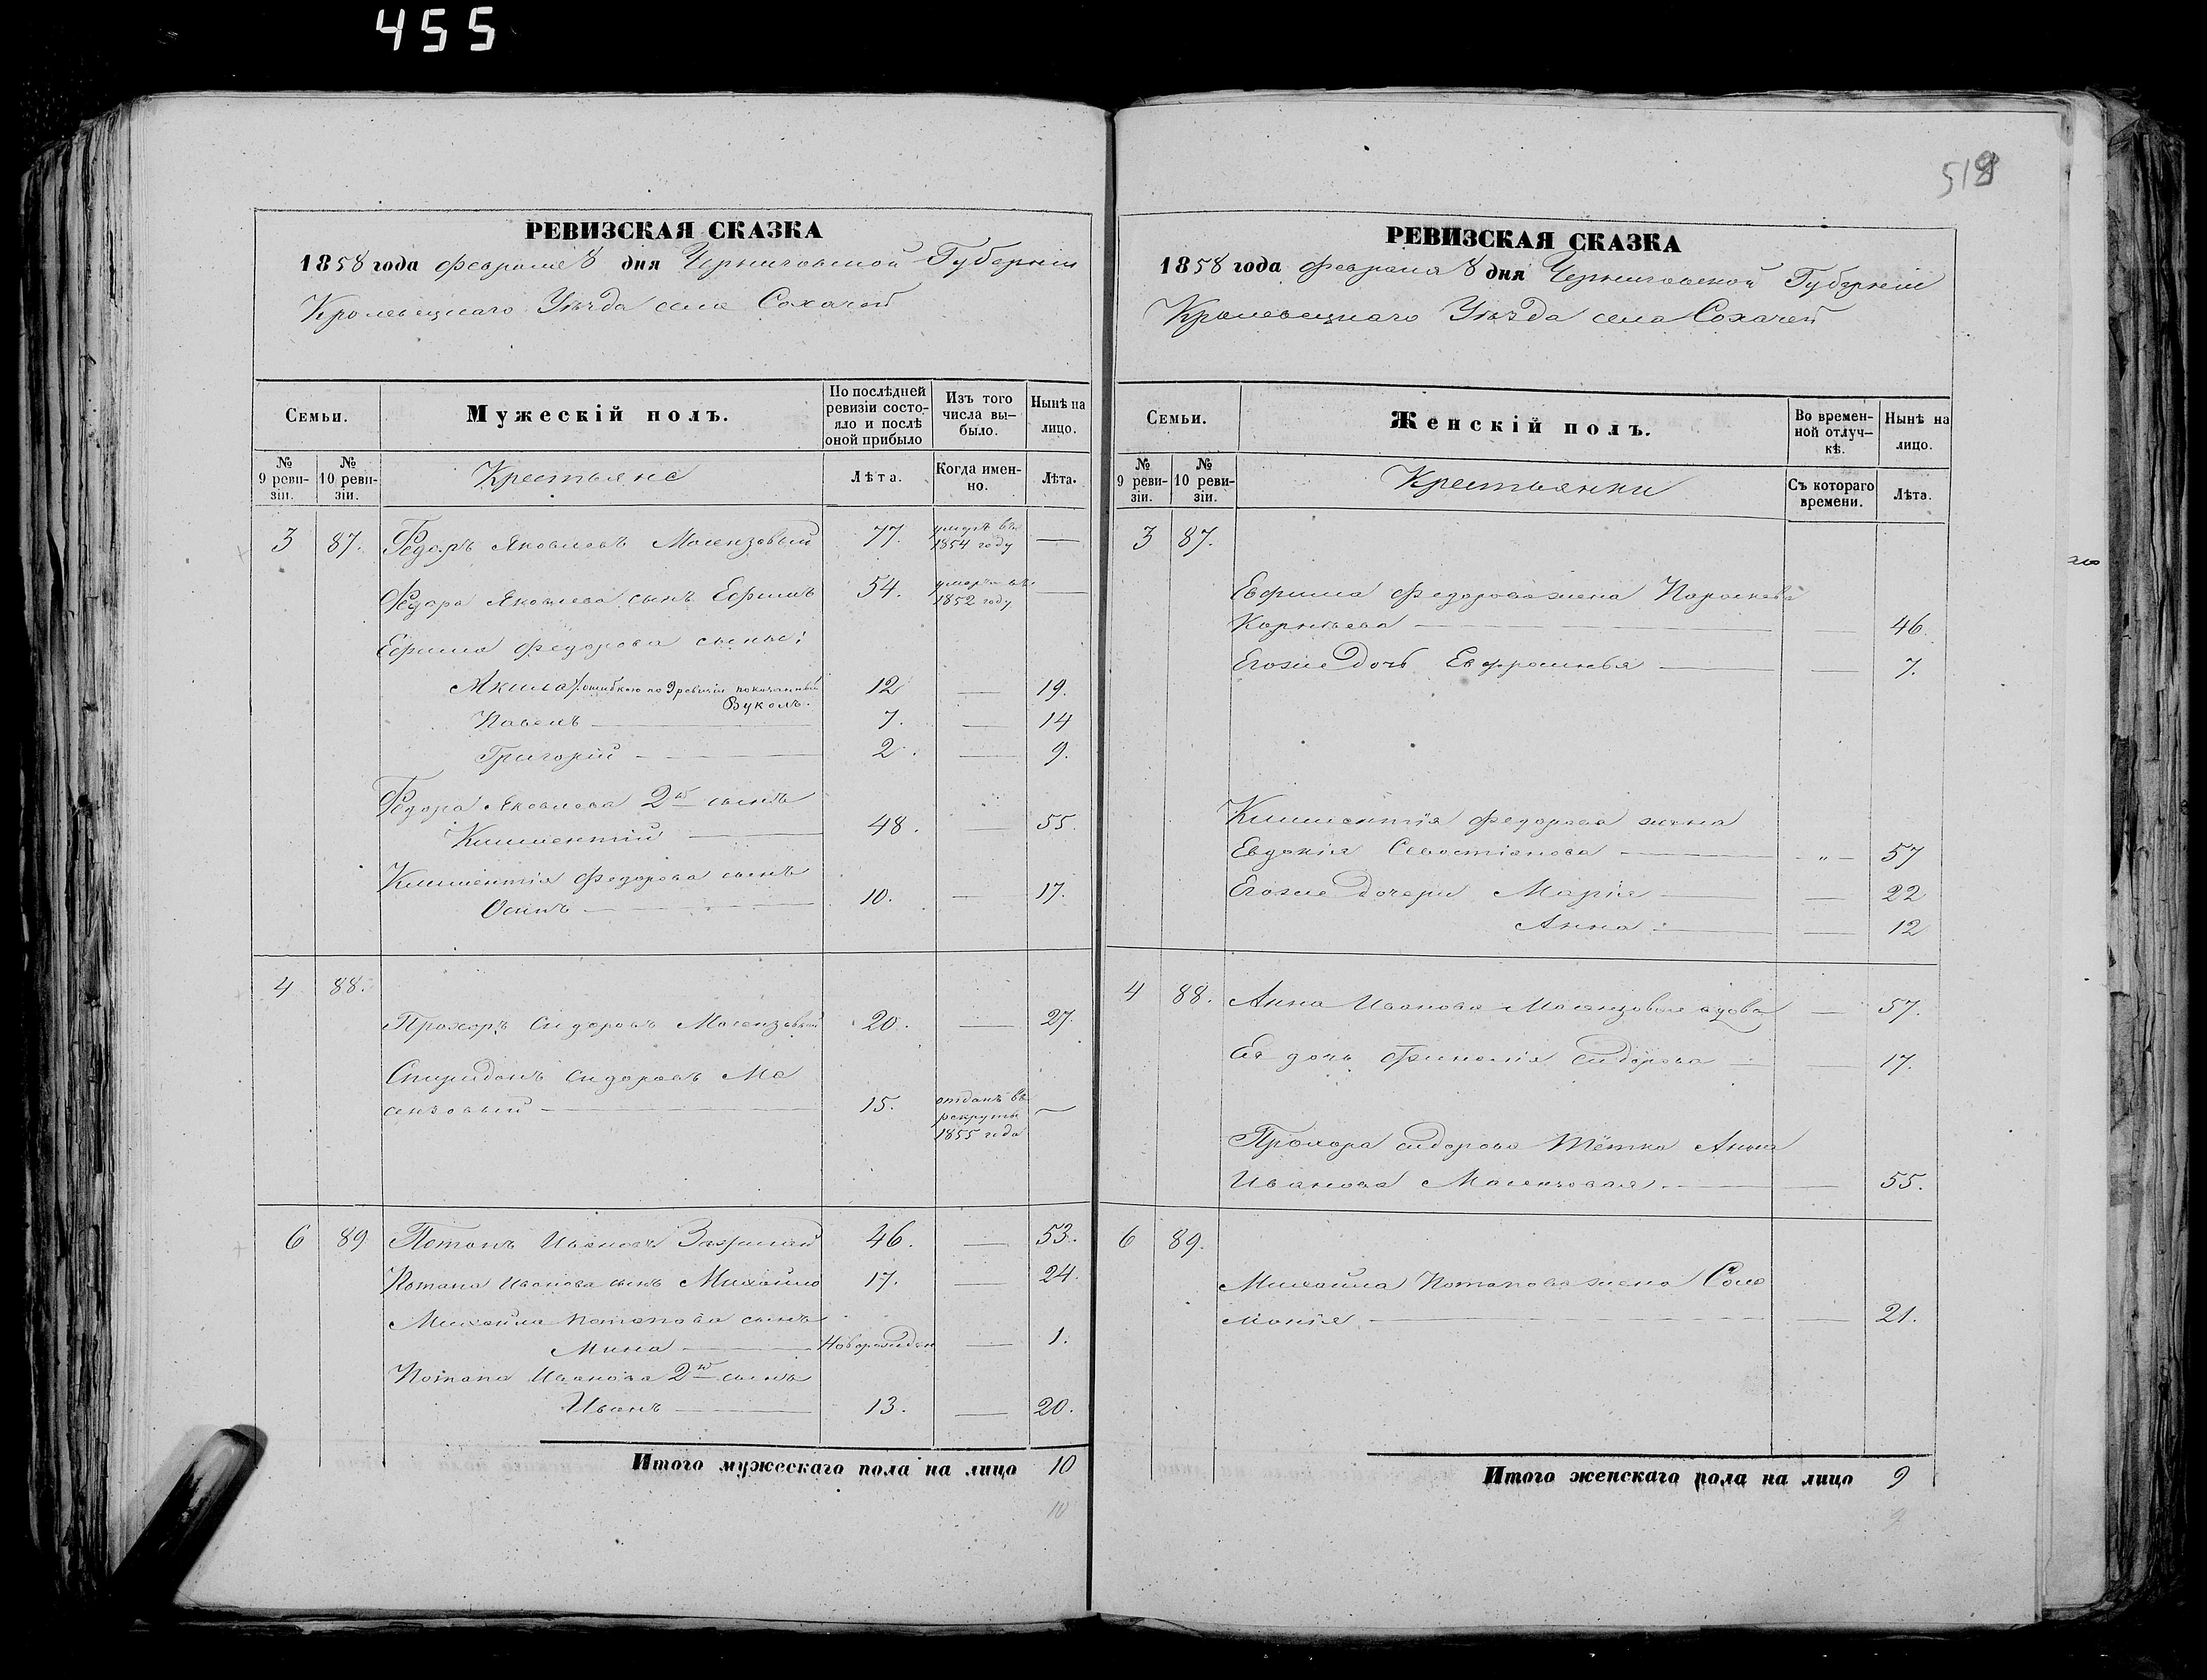 455
519
РЕВИЗСКАЯ СКАЗКА
1858 года февраля 8 дня Черниговской Губернии
Кролевецкаго Уѣзда села Сохачей
Семьи.
Мужескій полъ.
По послѣдней ревизіи состо-
яло и послѣ
оной прибыло
Изъ того
числа вы-
было.
Нынѣ на
лицо.
№
9 реви-
зіи.
№
10 реви-
зіи.
Крестьяне
Лѣта.
Когда имен-
но.
Лѣта.
3 87. Федоръ Яковлевъ Мосензовый 77. умеръ въ 1854 году —
Федора Яковлева сынъ Ефимъ 54. умеръ въ 1852 году —
Ефима Федорова сынье:
Акила /: ошибкою по 9 ревизіи показанный 12 — 19.
Вуколъ.
Павелъ — 7. — 14
Григорій — 2. — 9.
Федора Яковлева 2й сынъ
Климентій — 48. — 55.
Климентія Федорова сынъ
Осипъ — 10. — 17.
4 88.
Прохоръ Сидоровъ Мосензовый 20. — 27.
Спиридонъ Сидоровъ Мо
сензовый — 15. отданъ въ рекруты 1855 года —
6 89 Потапъ Ивановъ 46. — 53.
Потапа Иванова сынъ Михайло 17. — 24.
Михайла Потапова сынъ
Мина — Новорожден — 1.
Потапа Иванова 2й сынъ
Иванъ — 13. — 20.
Итого мужескаго пола на лицо 10
10
РЕВИЗСКАЯ СКАЗКА
1858 года февраля 8 дня Черниговской Губерніи
Кролевецкаго Уѣзда села Сохачей
Семьи.
Женскій полъ.
Во времен-
ной отлуч-
кѣ.
Нынѣ на
лицо.
№
9 реви-
зіи.
№
10 реви-
зіи.
Крестьянки
Съ котораго
времени.
Лѣта.
3 87.
Ефима Федорова жена Параскева
Корнѣева — — 46.
Егоже дочь Евфросинья — — 7.
Климентія Федорова жена
Евдокія Севостіянова — „ — 57
Егоже дочери Марія — — 22
Анна — — 12
4 88. Анна Иванова Мосензовая вдова — 57.
Ея дочь Сидорова — — 17.
Прохора Сидорова тётка Анна
Иванова Мосензовая. — — 55.
6 89.
Михайла Потапова жена Соло
монія — — 21.
Итого женскаго пола на лицо 9
9